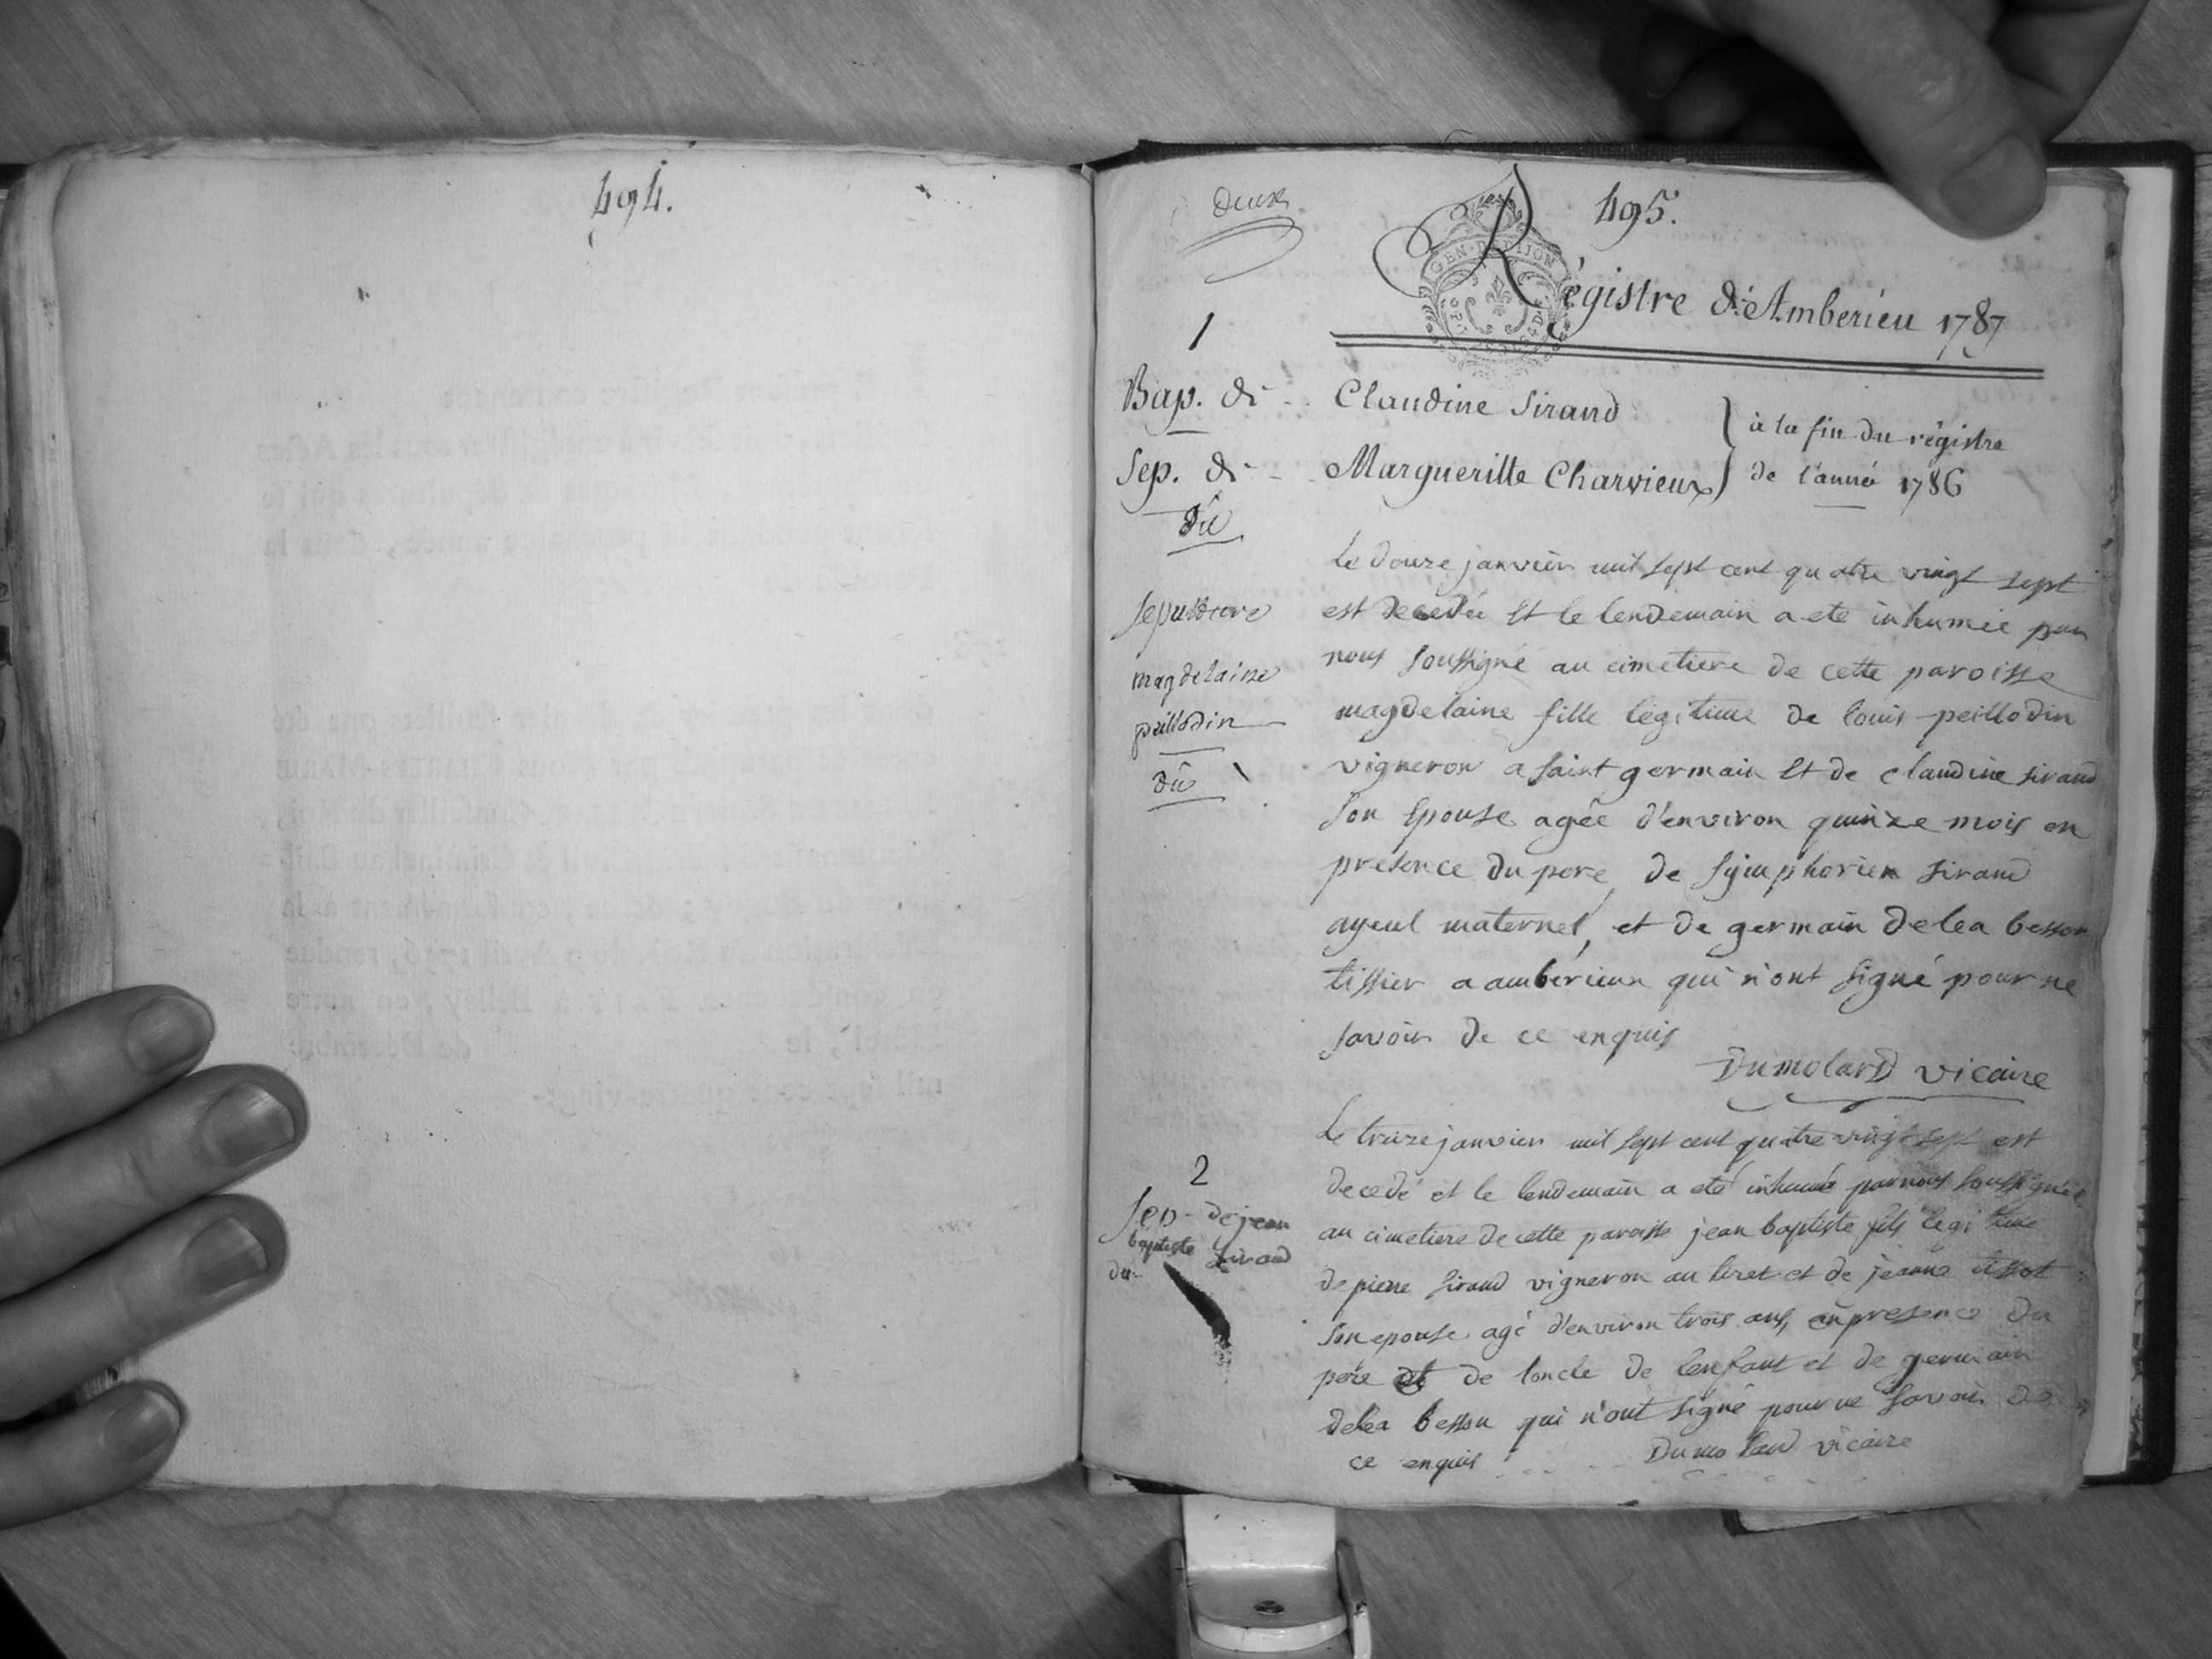 494.
deux
495.
GEN. DE DIJON
Régistre d'Ambérieu 1787
1
Bap. de - Claudine Sirand } à la fin du régistre
Sep. de - Margueritte Charvieux } de l'année 1786
dû
le douze janvier mil sept cent quatre vingt sept
est decedée et le lendemain a eté inhumée par
nous soussigné au cimetiere de cette paroisse
magdelaine fille legitime de louis peillodin
vigneron a saint germain et de claudine sirand
son epouse agée d'environ quinze mois en
presence du pere, de symphorien sirand
ayeul maternel, et de germain delea besson
tissier a amberieux qui n'ont signé pour ne
savoir de ce enquis
Dumolard vicaire
sepulture
magdelaine
peillodin
dû
2
Sep - de jean
baptiste sirand
du
Le treize janvier mil sept cent quatre vingt sept est
decedé et le lendemain a eté inhumé par nous soussigné
au cimetiere de cette paroisse jean baptiste fils legitime
de pierre sirand vigneron au tiret et de jeanne tissot
son epouse agé d'environ trois ans, en presence du
pere et de loncle de lenfant et de germain
delea besson qui n'ont signé pour ne savoir de
ce enquis Dumolard vicaire